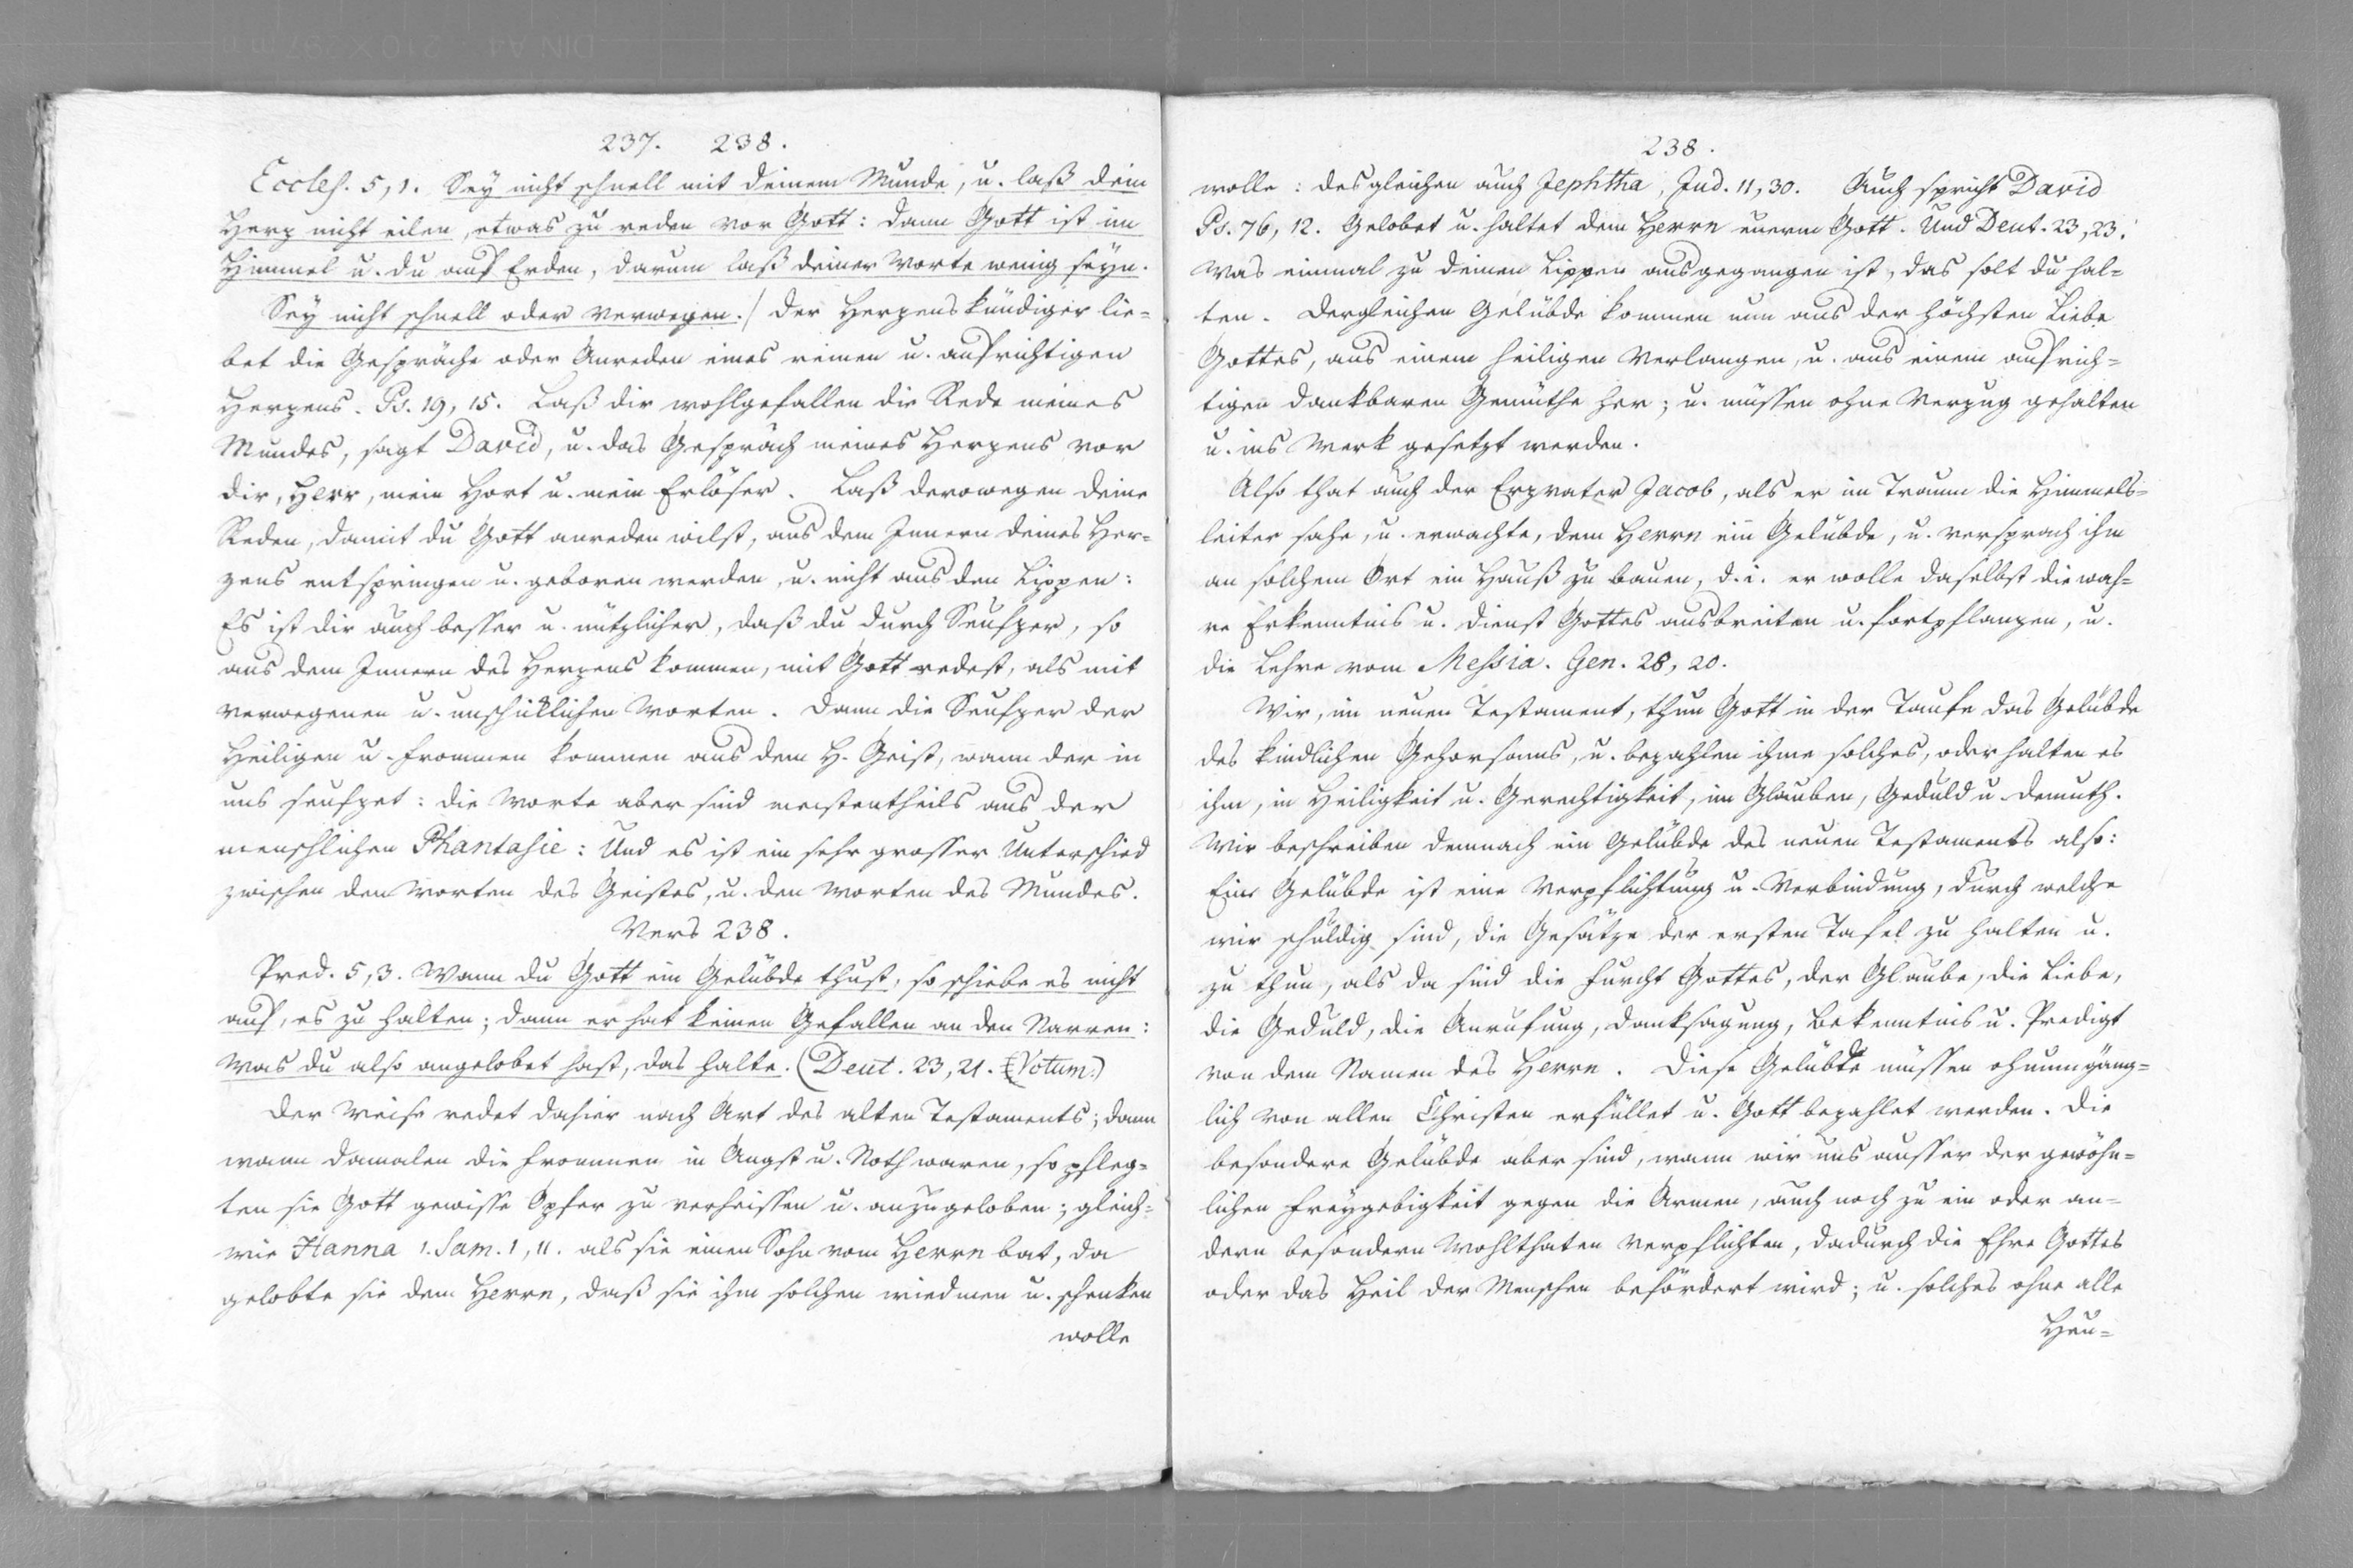 237. 238.
Eccles. 5, 1. Sey nicht schnell mit deinem Munde, u. laß dein
Herz nicht eilen, etwas zu reden vor Gott: dann Gott ist im
Himmel u. du auf Erden, darum laß deiner Worte wenig seyn.
Sey nicht schnell oder verwegen./ Der Herzenskündiger lie=
bet die Gespräche oder Anreden eines reinen u. aufrichtigen
Herzens. Ps. 19, 15. Laß dir wohlgefallen die Rede meines
Mundes, sagt David, u. das Gespräch meines Herzens vor
dir, Herr, mein Hort u. mein Erlöser. Laß derowegen deine
Reden, damit du Gott anreden wilst, aus dem Innern deines Her=
zens entspringen u. geboren werden, u. nicht aus den Lippen:
Es ist dir auch besser u. nützlicher, daß du durch Seufzer, so
aus dem Innern des Herzens kommen, mit Gott redest, als mit
verwegenen u. unschicklichen Worten. Dann die Seufzer der
Heiligen u. Frommen kommen aus dem H. Geist, wann der in
uns seufzet: die Worte aber sind meistentheils aus der
menschlichen Phantasie: Und es ist ein sehr grosser Unterschied
zwischen den Worten des Geistes, u. den Worten des Mundes.
Vers 238.
Pred. 5, 3. Wann du Gott ein Gelübde thust, so schiebe es nicht
auf, es zu halten; dann er hat keinen Gefallen an den Narren:
Was du also angelobet hast, das halte. (Deut. 23, 21. Votum.)
Der Weise redet dahier nach Art des alten Testaments; dann
wann damalen die Frommen in Angst u. Noth waren, so pfleg=
ten sie Gott gewisse Opfer zu verheissen u. anzugeloben; gleich=
wie Hanna 1. Sam. 1, 11. als sie einen Sohn vom Herrn bat, da
gelobte sie dem Herrn, daß sie ihm solchen wiedmen u. schenken
wolle
238.
wolle: desgleichen auch Jephtha, Jud. 11, 30. Auch spricht David
Ps. 76, 12. Gelobet u. haltet dem Herrn euerm Gott. Und Deut. 23, 23.
Was einmal zu deinen Lippen ausgegangen ist, das solt du hal=
ten. Dergleichen Gelübde kommen nun aus der höchsten Liebe
Gottes, aus einem heiligen Verlangen, u. aus einem aufrich=
tigen dankbaren Gemüthe her; u. müssen ohne Verzug gehalten
u. ins Werk gesetzt werden.
Also that auch der Erzvater Jacob, als er im Traum die Himmels=
leiter sahe, u. erwachte, dem Herrn ein Gelübde, u. versprach ihm
an solchem Ort ein Hauß zu bauen, d. i. er wolle daselbst die wah=
re Erkenntnis u. Dienst Gottes ausbreiten u. fortpflanzen, u.
die Lehre vom Messia. Gen. 28, 20.
Wir, im neuen Testament, thun Gott in der Taufe das Gelübde
des kindlichen Gehorsams, u. bezahlen ihme solches, oder halten es
ihm, in Heiligkeit u. Gerechtigkeit, im Glauben, Geduld u. Demuth.
Wir beschreiben demnach ein Gelübde des neuen Testaments also:
Eine Gelübde ist eine Verpflichtung u. Verbindung, durch welche
wir schuldig sind, die Gesätze der ersten Tafel zu halten u.
zu thun, als da sind die Furcht Gottes, der Glaube, die Liebe,
die Geduld, die Anrufung, Danksagung, Bekenntnis u. Predigt
von dem Namen des Herrn. Diese Gelübde müssen ohnumgäng=
lich von allen Christen erfüllet u. Gott bezahlet werden. Die
besondere Gelübde aber sind, wann wir uns ausser der gewöhn=
lichen Freygebigkeit gegen die Armen, auch noch zu ein oder an=
dern besondern Wohlthaten verpflichten, dadurch die Ehre Gottes
oder das Heil der Menschen befördert wird; u. solches ohne alle
Heu=